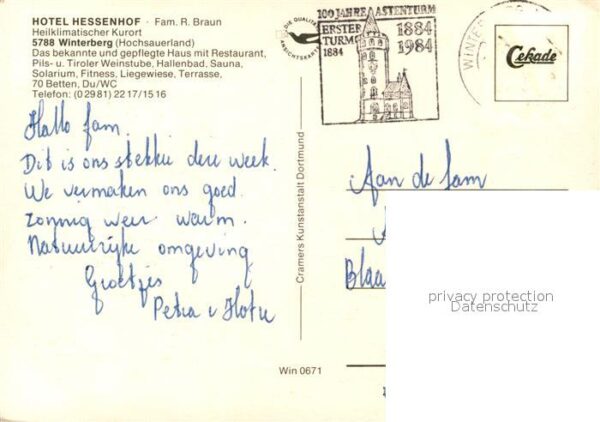 HOTEL HESSENHOF · Fam. R. Braun
Heilklimatischer Kurort
5788 Winterberg (Hochsauerland)
Das bekannte und gepflegte Haus mit Restaurant,
Pils- u. Tiroler Weinstube, Hallenbad, Sauna,
Solarium, Fitness, Liegewiese, Terrasse,
70 Betten, Du/WC
Telefon: (0 29 81) 22 17/15 16
Hallo fam.
Dit is ons stekkie deze week.
We vermaken ons goed
zonnig weer warm.
Natuurrijke omgeving
Groetjes
Petra
DIE QUALITÄTS
ANSICHTSKARTE
100 JAHRE ASTENTURM
ERSTER
TURM
1884
1884
1984
WINTERBERG
Cekade
Cramers Kunstanstalt Dortmund
Aan de fam
Blaa
privacy protection
Datenschutz
Win 0671